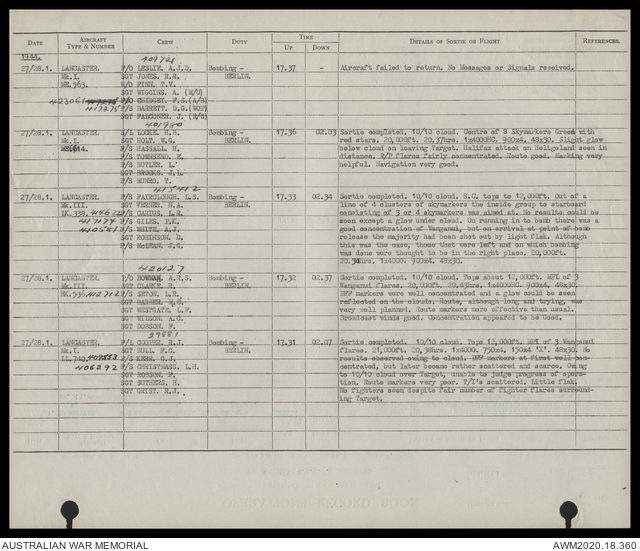 DATE AIRCRAFT TYPE & NUMBER CREW DUTY TIME UP DOWN DETAILS OF SORTIE OR FLIGHT REFERENCES.
1944.
409721
27/28.1. LANCASTER. P/O LESLIE, A.J.D. Bombing - 17.37 - Aircraft failed to return. No Messages or Signals received.
Mk.I. SGT JONES, R.R. BERLIN.
ME.563. W/O FINN, T.V.
SGT WIGGINS, N. (M/U)
423061 F/O CHIDGEY, F.G. (A/B)
417275 F/S BARRETT, D.G. (WOP)
SGT FALCONER, J. (R/G)
401980
27/28.1. LANCASTER. S/L LOCKE, H.B. Bombing - 17.36 02.03 Sortie completed. 10/10 cloud. Centre of 8 Skymarkers Green with
Mk.I. SGT HOLT, W.G. BERLIN. red stars. 20,000ft. 20.37hrs. 1x4000HC. 900x4, 48x30. Slight glow
F/S HASSALL, below cloud on leaving Target. Halifax attack on Heligoland seen in
F/S TOWNSEND, distance. R/P flares fairly concentrated. Route good. Marking very
F/S BUTLER, helpful. Navigation very good.
SGT BROOKS, J.L.
F/S MUNRO, T.
415412
27/28.1. LANCASTER. F/S FAIRCLOUGH, L.S. Bombing - 17.33 02.34 Sortie completed. 10/10 cloud. S.C. tops to 12,000ft. Out of a
Mk.III. SGT VASSER, H.A. BERLIN. line of 4 clusters of skymarkers the inside group to starboard
F/S CARIUS, L.R. consisting of 3 or 4 skymarkers was aimed at. No results could be
F/S GILES, P.K. seen except a glow under cloud. On running in to bomb there was a
F/S WHITE, A.J. good concentration of Wanganui, but on arrival at point of bomb
SGT ROBINSON, D. release the majority had been shot out by light flak. Although
F/S McLEAN, J.G. this was the case, those that were left and on which bombing
was done were thought to be in the right place. 20,000ft.
20.34hrs. 1x4000. 900x4, 48x30.
420127
27/28.1. LANCASTER. Bombing - 17.32 02.37 Sortie completed. 10/10 cloud. Tops about 12,000ft. MPI of 3
Mk.III. SGT CLARKE, R. BERLIN. Wanganui flares. 20,000ft. 20.43hrs. 1x4000HC. 900x4, 48x30.
F/S SETON, L.R. PFF markers were well concentrated and a glow could be seen
SGT BARBER, H.G. reflected on the clouds. Route, although long and trying, was
SGT WESTGATE, L.F. very well planned. Route markers more effective than usual.
SGT WILSON, A.G. Broadcast winds good. Concentration appeared to be good.
SGT DODSON, F.
29881
27/28.1. LANCASTER. F/L COOPER, R.J. Bombing - 17.31 02.07 Sortie completed. 10/10 cloud. Tops 12,000ft. MPI of 3 Wanganui
Mk.I. SGT BULL, F.C. BERLIN. flares. 21,000ft. 20,38hrs. 1x4000. 750x4, 150x4 'X'. 48x30. No
LL.740. F/S KERR, G.J. results observed owing to cloud. PFF markers at first well con-
406292 F/S CHRISTMASS, L.H. centrated, but later became rather scattered and scarce. Owing
SGT ROBSON, F. to 10/10 cloud over Target, unable to judge progress of opera-
SGT SUTHERS, H. tion. Route markers very poor. T/I's scattered. Little flak.
SGT GRIST, R.J. No fighters seen despite fair number of fighter flares surround-
ing Target.
AUSTRALIAN WAR MEMORIAL AWM2020.18.360